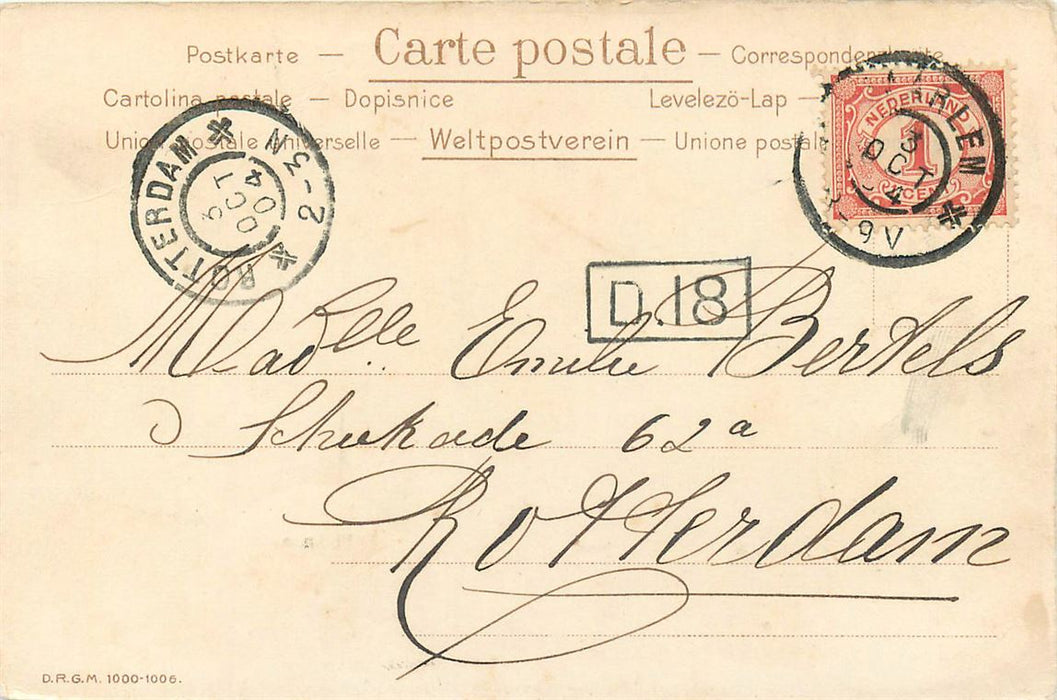 Postkarte — Carte postale — Correspondenzkarte
Cartolina postale — Dopisnice Levelezö-Lap —
Union postale universelle — Weltpostverein — Unione postale
NEDERLAND
1
CENT
3
OCT
04
8-9V
ROTTERDAM
2-3N
OCT
04
D.18
Madelle Emilie Bertels
Schiekade 62a
Rotterdam
D.R.G.M. 1000-1006.